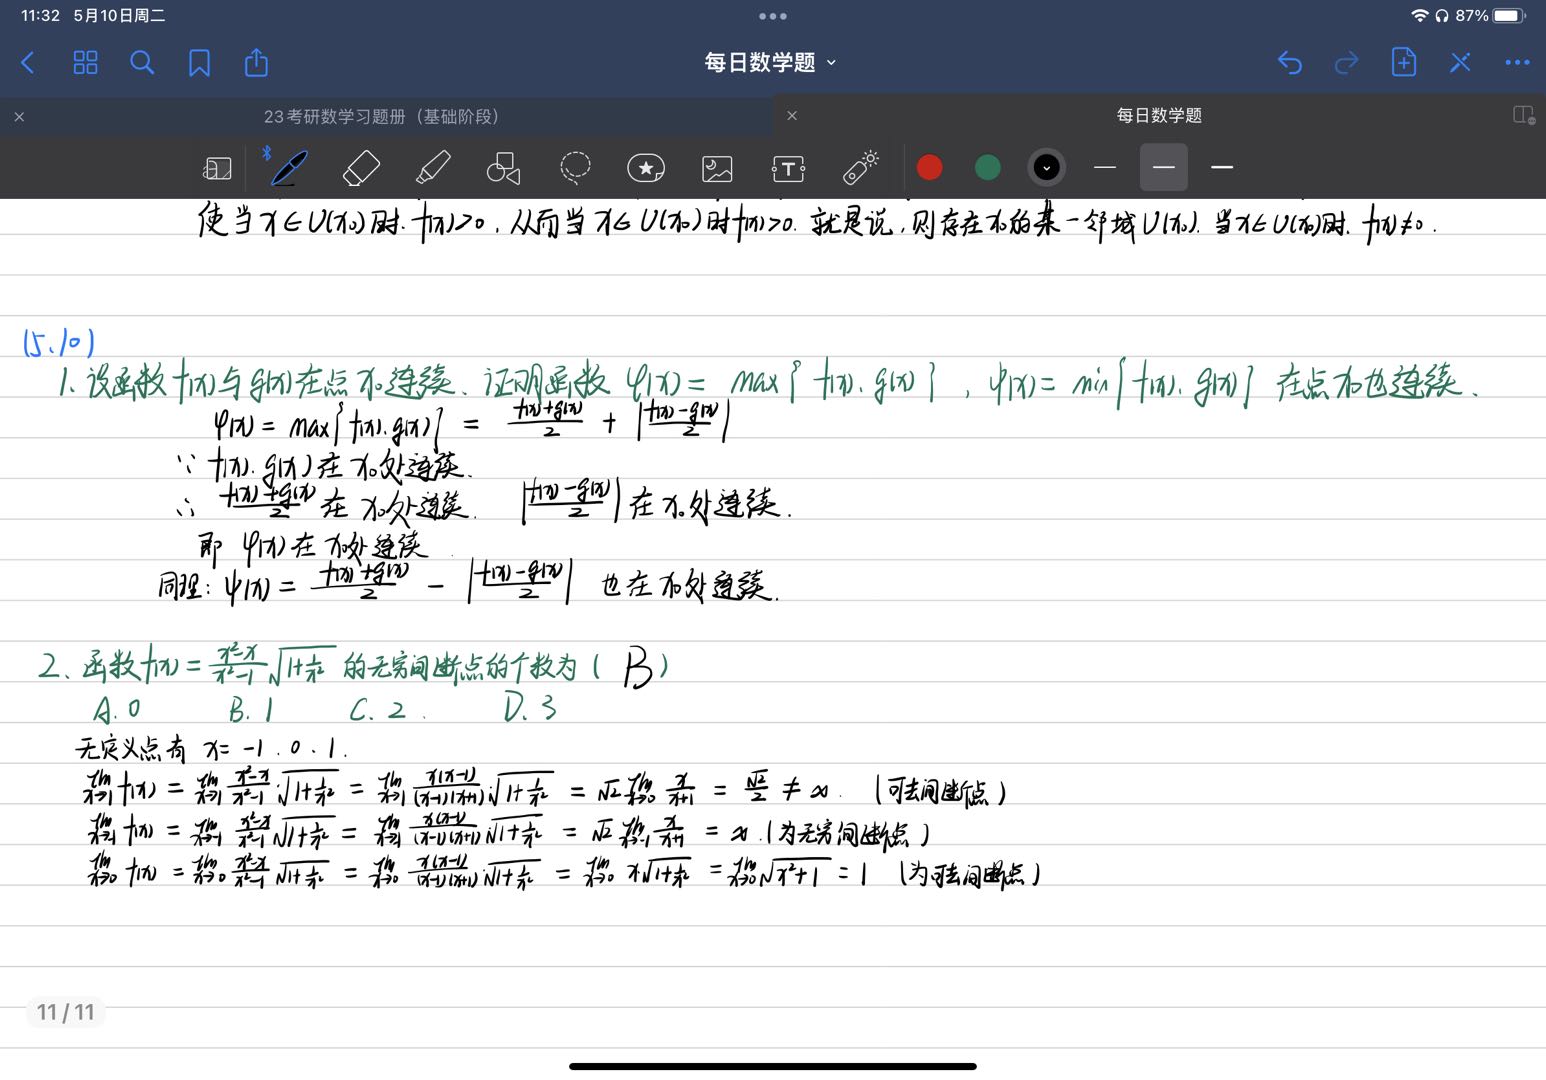 11:32 5月10日周二
87%
每日数学题
23考研数学习题册（基础阶段）
每日数学题
使当x∈U(x₀)时. f(x)>0, 从而当x∈U(x₀)时f(x)>0. 就是说, 则存在x₀的某一邻域U(x₀). 当x∈U(x₀)时. f(x)≠0.
(5.10)
1、设函数f(x)与g(x)在点x₀连续、证明函数 φ(x)= max{f(x).g(x)}, ψ(x)= min{f(x).g(x)} 在点x₀也连续.
φ(x)= max{f(x).g(x)} = (f(x)+g(x))/2 + |(f(x)-g(x))/2|
∵ f(x).g(x)在x₀处连续.
∴ (f(x)+g(x))/2 在x₀处连续. |(f(x)-g(x))/2| 在x₀处连续.
即 φ(x)在x₀处连续.
同理: ψ(x) = (f(x)+g(x))/2 - |(f(x)-g(x))/2| 也在x₀处连续.
2、函数f(x)= (x²-x)/(x²-1) √(1+1/x²) 的无穷间断点的个数为( B )
A.0 B.1 C.2. D.3
无定义点有 x= -1.0.1.
lim x→1 f(x) = lim x→1 (x²-x)/(x²-1) · √(1+1/x²) = lim x→1 x(x-1)/((x-1)(x+1)) · √(1+1/x²) = √2 lim x→0 x/(x+1) = √2/2 ≠ ∞. (可去间断点)
lim x→-1 f(x) = lim x→-1 (x²-x)/(x²-1) √(1+1/x²) = lim x→-1 x(x-1)/((x-1)(x+1)) √(1+1/x²) = √2 lim x→-1 x/(x+1) = ∞.(为无穷间断点)
lim x→0 f(x) = lim x→0 (x²-x)/(x²-1) √(1+1/x²) = lim x→0 x(x-1)/((x-1)(x+1)) · √(1+1/x²) = lim x→0 x√(1+1/x²) = lim x→0 √(x²+1) = 1 (为可去间断点)
11/11